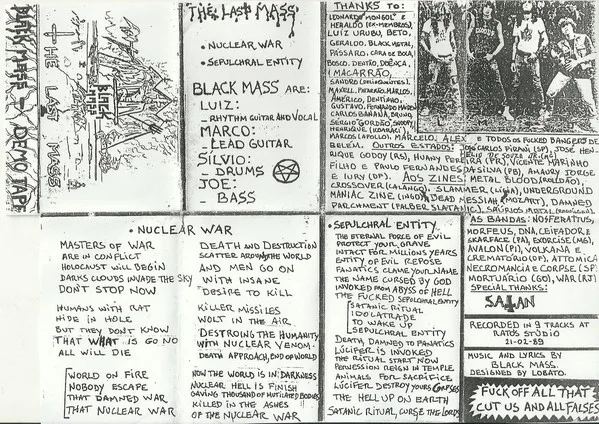 BLACK MASS - DEMO TAPE
THE LAST MASS
BLACK
MASS
THE LAST MASS
• NUCLEAR WAR
• SEPULCHRAL ENTITY
BLACK MASS ARE:
LUIZ:
- RHYTHM GUITAR AND VOCAL
MARCO:
- LEAD GUITAR
SILVIO:
- DRUMS
JOE:
- BASS
THANKS TO:
LEONARDO MONGOL E
HERALDO (EX-MEMBROS),
LUIZ URUBU, BETO,
GERALDO, BLACK METAL,
PÁSSARO, CARA DE BOCA,
BOSCO, DENTÃO, DOENÇA,
MACARRÃO,
SANDRO (DELINQUENTES),
MAXELL, PATARRÃO, MARLOS,
AMÉRICO, DENTINHO,
GUSTAVO, FERNANDO MAIDEN,
CARLOS BANANA, BRUNO,
SÉRGIO GORDÃO, SNOOPY,
HENRIQUE
MARCOS (APOLLO), MARCELO, ALEX E TODOS OS FUCKED BANGERS DE
BELÉM. OUTROS ESTADOS: JOSÉ CARLOS PIRANI (SP), JOSÉ HEN-
RIQUE GODOY (RS), HUANY PEREIRA (PR), VICENTE MARINHO
FILHO E PAULO FERNANDES DA SILVA (PB), AMAURY JORGE
E IURY (DF). AOS ZINES: METAL BLOOD (ROLDÃO),
CROSSOVER (CALANGO), SLAMMER (LÍGIA), UNDERGROUND
MANIAC ZINE (IAGO), DEAD MESSIAH (MOZART), DAMNED
PARCHMENT (FALBER SLATANIC),
AS BANDAS: NOSFERATUS,
MORFEUS, DNA, CEIFADOR E
SKARFACE (PA), EXORCISE (MG),
AVALON (PI), VOLKANA E
CREMATÓRIO (DF), ATTOMICA
NECROMANCIA E CORPSE (SP)
MORTUÁRIO (GO), WAR (RJ)
SPECIAL THANKS:
SATAN
RECORDED IN 9 TRACKS AT
RATOS STUDIO
21-02-89
MUSIC AND LYRICS BY
BLACK MASS.
DESIGNED BY LOBATO.
FUCK OFF ALL THAT
CUT US AND ALL FALSES
• NUCLEAR WAR
MASTERS OF WAR
ARE IN CONFLICT
HOLOCAUST WILL BEGIN
DARKS CLOUDS INVADE THE SKY
DON'T STOP NOW
HUMANS WITH RAT
HIDE IN HOLE
BUT THEY DON'T KNOW
THAT WHAT IS GO NO
ALL WILL DIE
WORLD ON FIRE
NOBODY ESCAPE
THAT DAMNED WAR
THAT NUCLEAR WAR
DEATH AND DESTRUCTION
SCATTER AROUND THE WORLD
AND MEN GO ON
WITH INSANE
DESIRE TO KILL
KILLER MISSILES
WOLT IN THE AIR
DESTROING THE HUMANITY
WITH NUCLEAR VENOM.
DEATH APPROACH, END OF WORLD
NOW THE WORLD IS IN DARKNESS
NUCLEAR HELL IS FINISH
GAVING THOUSAND OF MUTILATED BODIES
KILLED IN THE ASHES
OF THE NUCLEAR WAR
• SEPULCHRAL ENTITY
THE ETERNAL FORCE OF EVIL
PROTECT YOUR GRAVE
INTACT FOR MILLIONS YEARS
ENTITY OF EVIL REPOSE
FANATICS CLAME YOUR NAME
THE NAME CURSED BY GOD
INVOKED FROM ABYSS OF HELL
THE FUCKED SEPULCHRAL ENTITY
SATANIC RITUAL
IDOLATRADE
TO WAKE UP
SEPULCHRAL ENTITY
DEATH, DAMNED TO FANATICS
LUCIFER IS INVOKED
THE RITUAL START NOW
POSSESSION REIGN IN TEMPLE
ANIMALS FOR SACRIFICE
LUCIFER DESTROY YOURS CORPSES
THE HELL UP ON EARTH
SATANIC RITUAL, CURSE THE LORDS